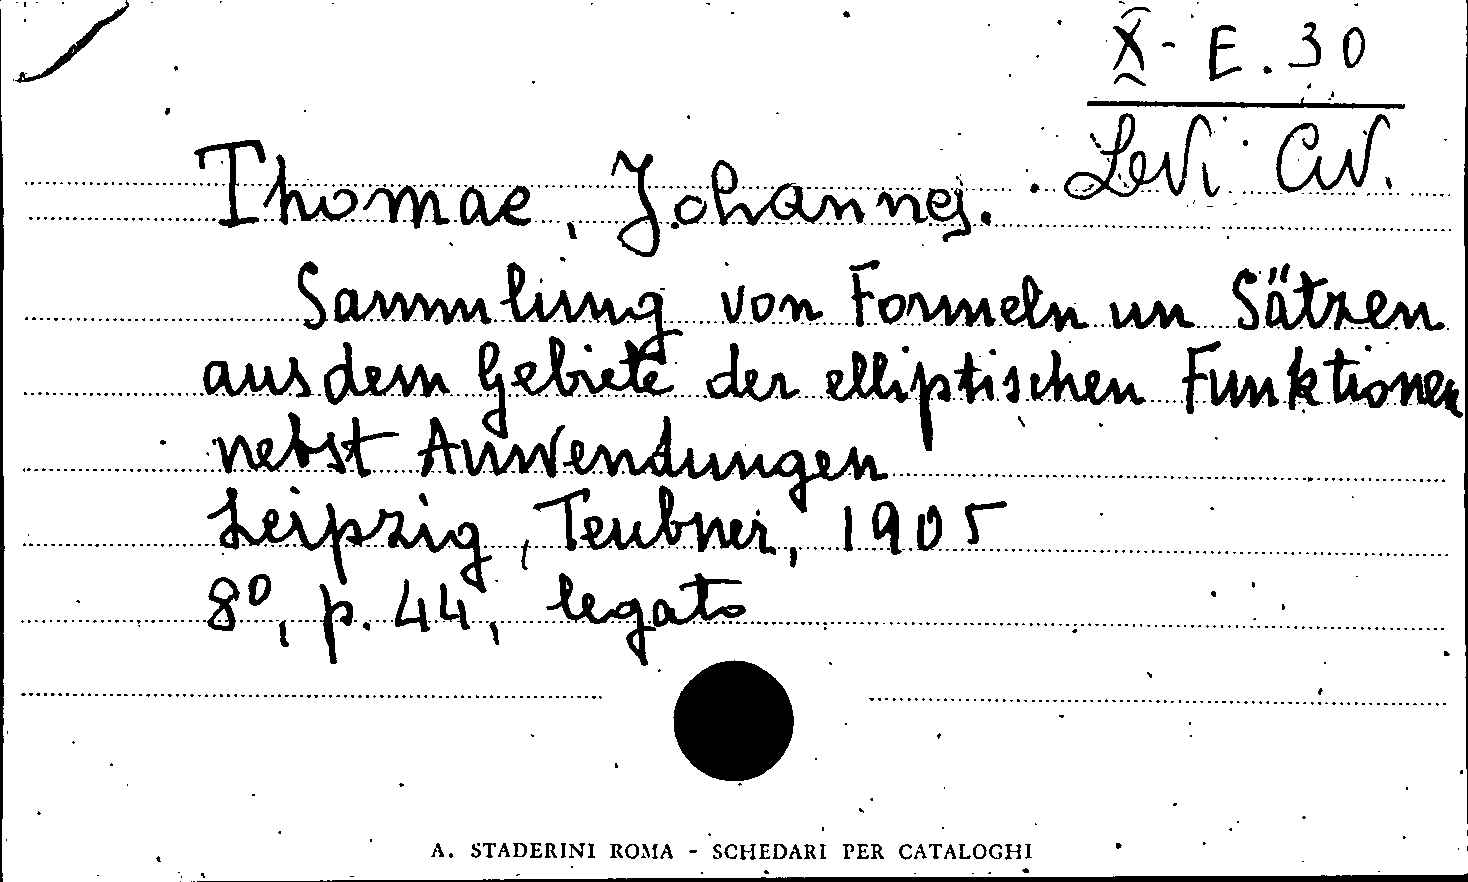 X - E. 30
Levi Civ.
Thomae, Johannes.
Sammlung von Formeln un Sätzen
aus dem Gebiete der elliptischen Funktionen
nebst Anwendungen
Leipzig, Teubner, 1905
8°, p. 44, legato
A. STADERINI ROMA - SCHEDARI PER CATALOGHI